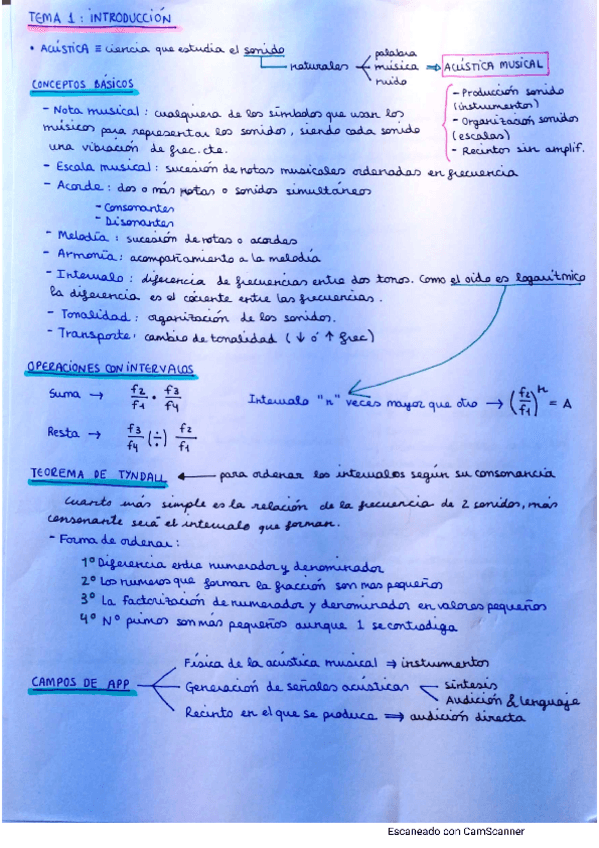 TEMA 1: INTRODUCCIÓN
• ACÚSTICA ≡ ciencia que estudia el sonido
naturales
palabra
música ⇒ ACÚSTICA MUSICAL
ruido
- Producción sonido
(instrumentos)
- Organización sonidos
(escalas)
- Recintos sin amplif.
CONCEPTOS BÁSICOS
- Nota musical: cualquiera de los símbolos que usan los
músicos para representar los sonidos, siendo cada sonido
una vibración de frec. cte.
- Escala musical: sucesión de notas musicales ordenadas en frecuencia
- Acorde: dos o más notas o sonidos simultáneos
- Consonantes
- Disonantes
- Melodía: sucesión de notas o acordes
- Armonía: acompañamiento a la melodía
- Intervalo: diferencia de frecuencias entre dos tonos. Como el oido es logarítmico
la diferencia es el cociente entre las frecuencias.
- Tonalidad: organización de los sonidos.
- Transporte: cambio de tonalidad (↓ ó ↑ frec)
OPERACIONES CON INTERVALOS
Suma → f2/f1 · f3/f4
Intervalo "n" veces mayor que otro → (f2/f1)^n = A
Resta → f3/f4 (÷) f2/f1
TEOREMA DE TYNDALL ← para ordenar los intervalos según su consonancia
Cuanto más simple es la relación de la frecuencia de 2 sonidos, más
consonante será el intervalo que forman.
- Forma de ordenar:
1º Diferencia entre numerador y denominador
2º Los numeros que forman la fracción son mas pequeños
3º La factorización de numerador y denominador en valores pequeños
4º Nº primos son más pequeños aunque 1 se contradiga
CAMPOS DE APP
Física de la acústica musical ⇒ instrumentos
Generación de señales acústicas
síntesis
Audición & lenguaje
Recinto en el que se produce ⇒ audición directa
Escaneado con CamScanner